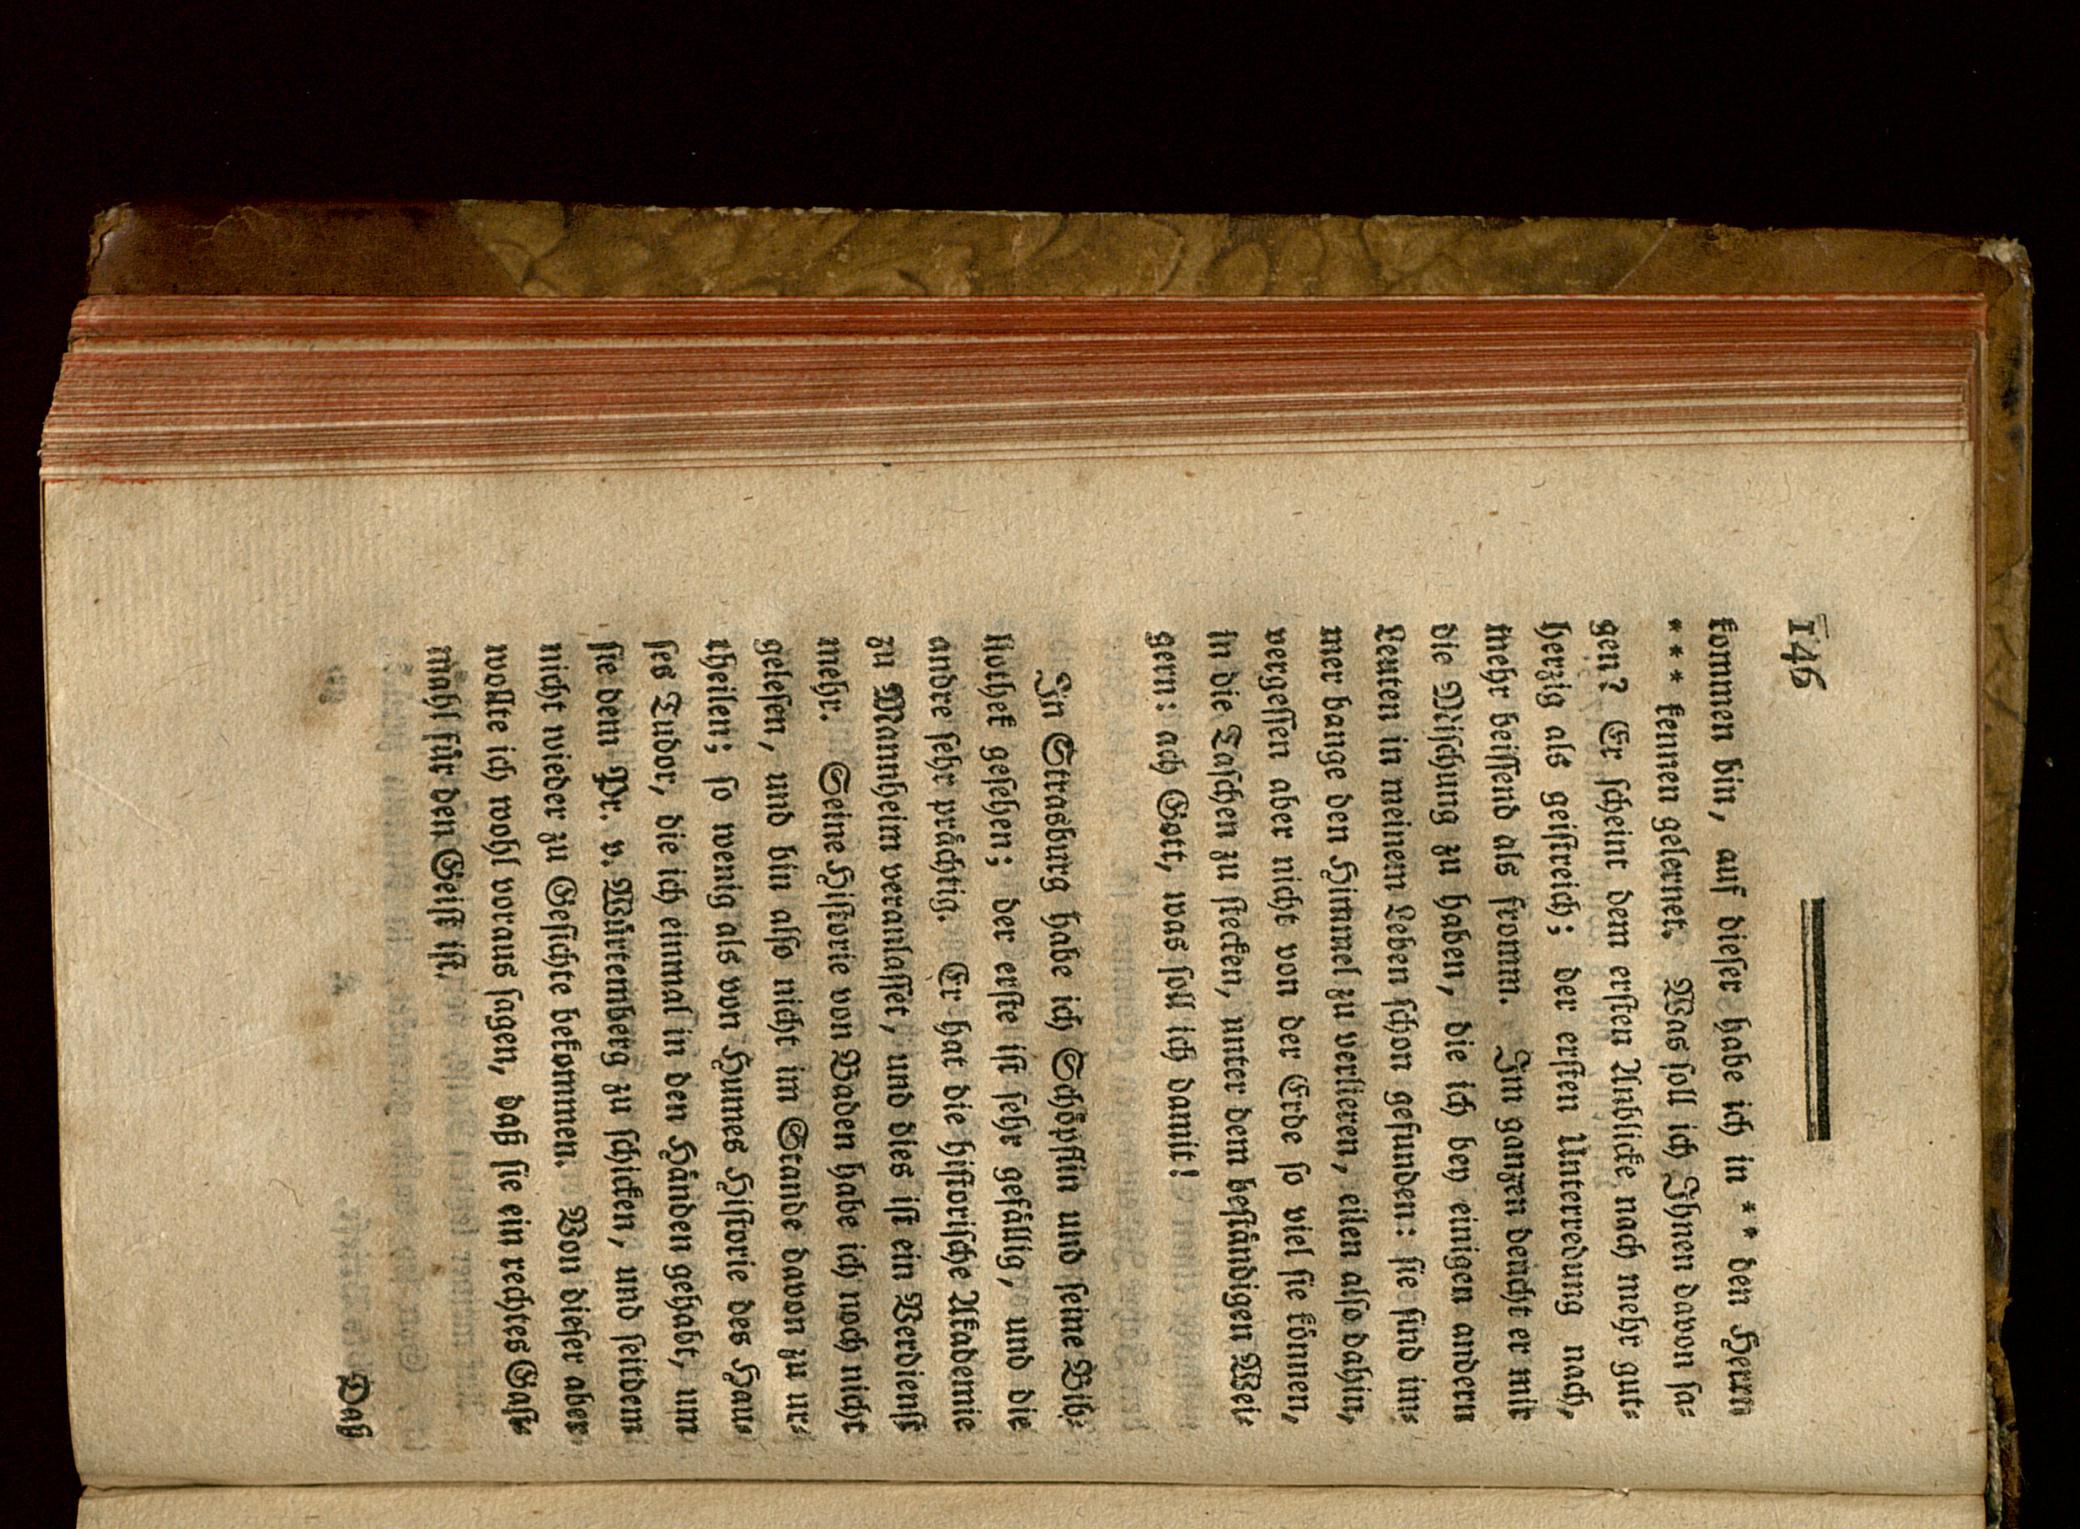 146
kommen bin, auf dieser habe ich in * * den Herrn
* * * kennen gelernet. Was soll ich Ihnen davon sa-
gen? Er scheint dem ersten Anblicke nach mehr gut-
herzig als geistreich; der ersten Unterredung nach,
mehr beissend als fromm. Im ganzen deucht er mir
die Mischung zu haben, die ich bey einigen andern
Leuten in meinem Leben schon gefunden: sie sind im-
mer bange den Himmel zu verlieren, eilen also dahin,
vergessen aber nicht von der Erde so viel sie können,
in die Taschen zu stecken, unter dem beständigen Wei-
gern: ach Gott, was soll ich damit!
In Strasburg habe ich Schöpflin und seine Bib-
liothek gesehen; der erste ist sehr gefällig, und die
andre sehr prächtig. Er hat die historische Akademie
zu Mannheim veranlasset, und dies ist ein Verdienst
mehr. Seine Historie von Baden habe ich noch nicht
gelesen, und bin also nicht im Stande davon zu ur-
theilen; so wenig als von Humes Historie des Hau-
ses Tudor, die ich einmal in den Händen gehabt, um
sie dem Pr. v. Würtemberg zu schicken, und seitdem
nicht wieder zu Gesichte bekommen. Von dieser aber
wollte ich wohl voraus sagen, daß sie ein rechtes Gast-
mahl für den Geist ist.
Daß